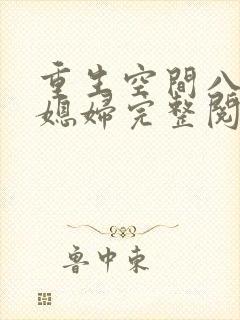 重生空間八
媳婦完整閱
魯中東